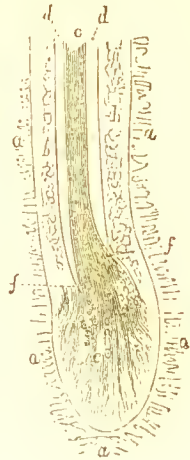 d. d
c
a
a
f
f
a a
a